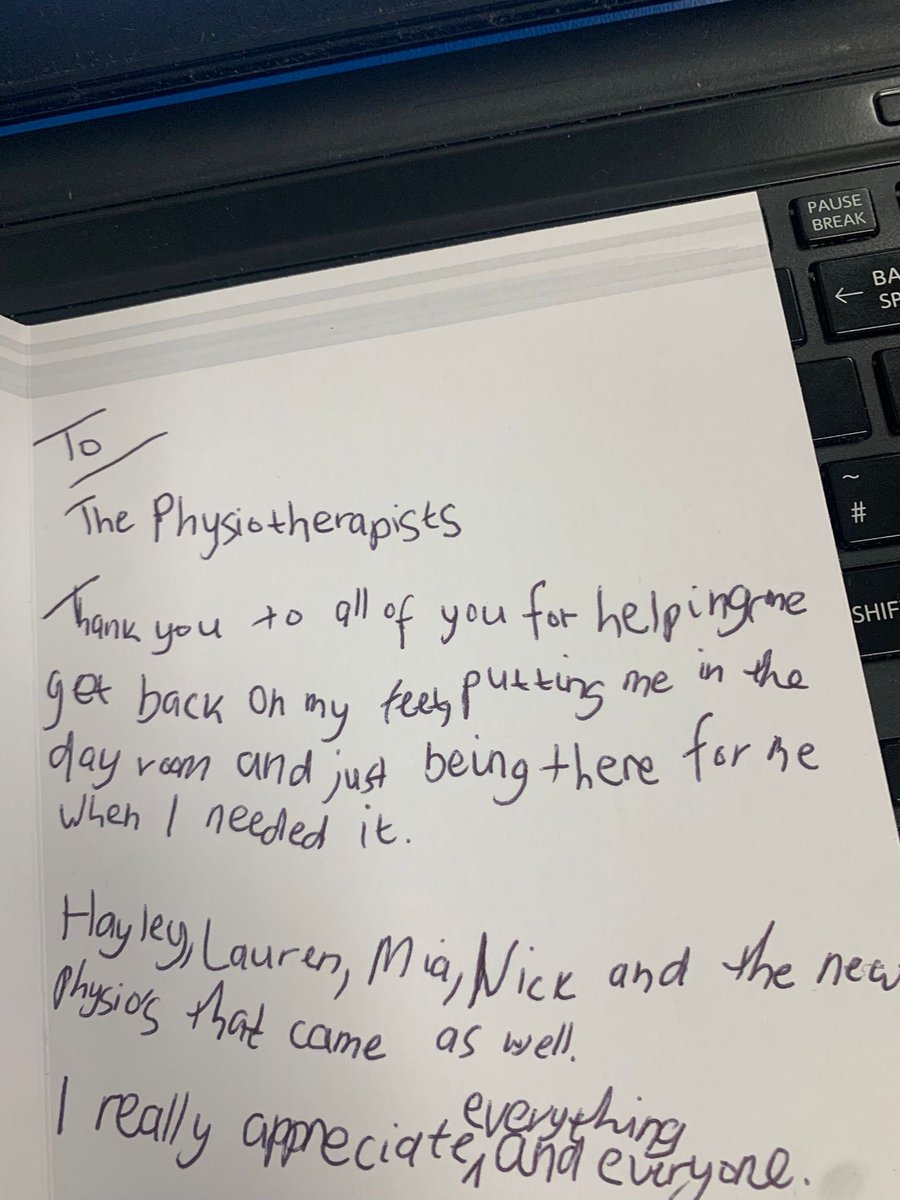 To
The Physiotherapists
Thank you to all of you for helping me
get back on my feet, putting me in the
day room and just being there for me
when I needed it.
Hayley, Lauren, Mia, Nick and the new
Physio's that came as well.
I really appreciate, everything and everyone.
PAUSE
BREAK
← BA
SP
~
#
SHIF